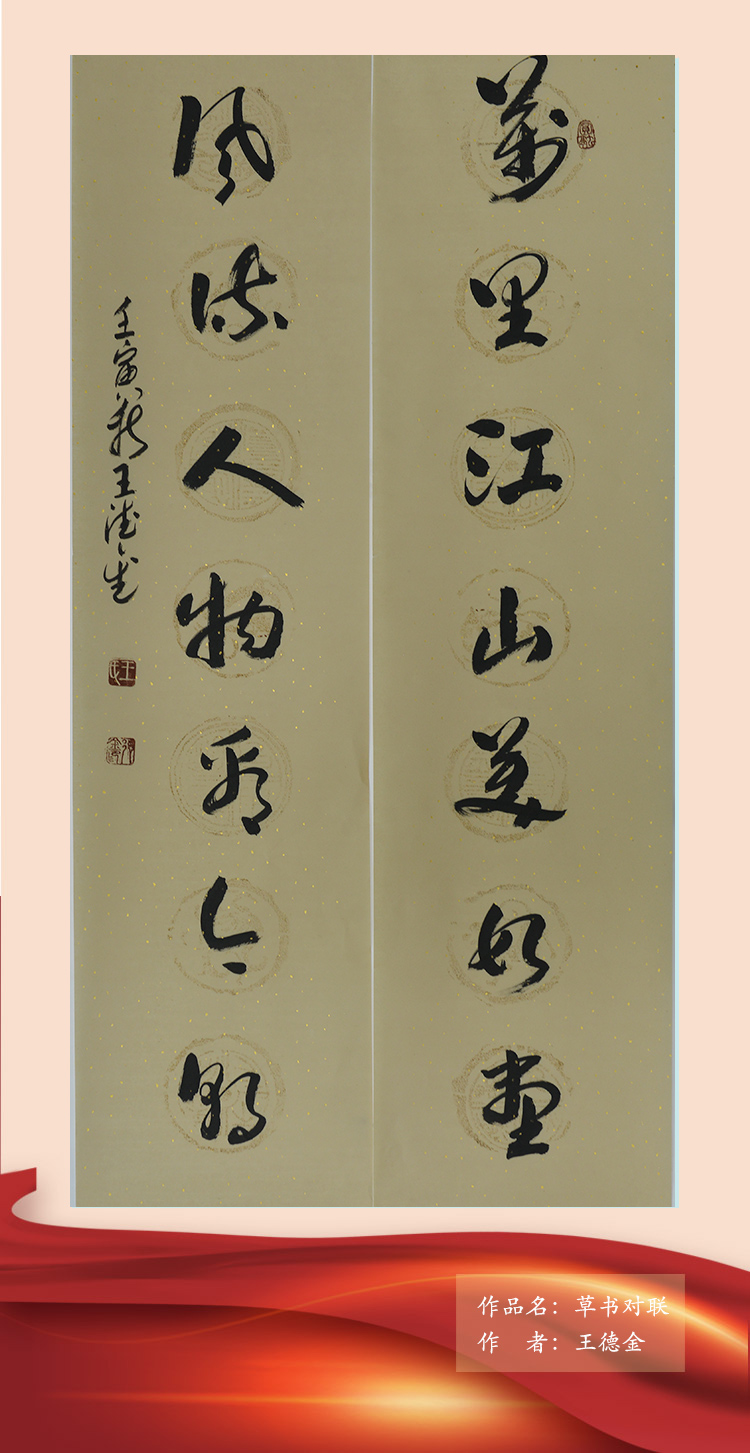 萬里江山美如畫
風流人物看今朝
壬寅秋王德金
作品名：草书对联
作　者：王德金